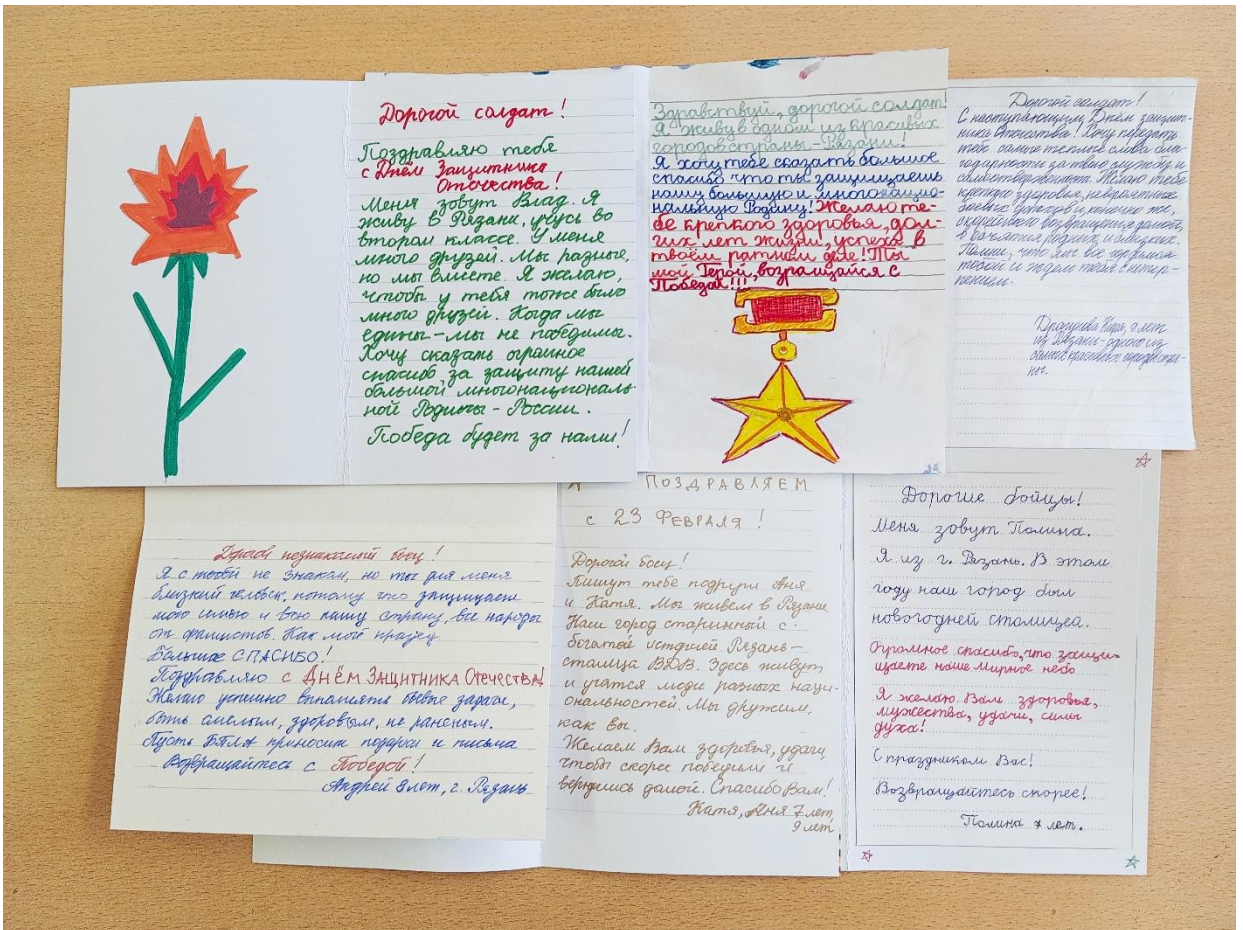 Дорогой солдат!
Поздравляю тебя
с Днём Защитника
Отечества!
Меня зовут Влад. Я
живу в Рязани, учусь во
втором классе. У меня
много друзей. Мы разные,
но мы вместе. Я желаю,
чтобы у тебя тоже было
много друзей. Когда мы
едины – мы не победимы.
Хочу сказать огромное
спасибо за защиту нашей
большой многонациональ
ной Родины – России.
Победа будет за нами!
Здравствуй, дорогой солдат!
Я живу в одном из красивых
городов страны – Рязани!
Я хочу тебе сказать большое
спасибо что ты защищаешь
нашу большую и многонацио-
нальную Родину! Желаю те-
бе крепкого здоровья, дол-
гих лет жизни, успеха в
твоём ратном деле! Ты
мой Герой, возращайся с
Победой!!!
Дорогой солдат!
С наступающим Днём защит-
ника Отечества! Хочу передать
тебе самые теплые слова бла-
годарности за твою службу и
самоотверженность. Желаю тебе
крепкого здоровья, невероятных
боевых успехов и конечно же,
скорейшего возвращения домой,
в объятия родных и близких.
Помни, что мы все гордимся
тобой и ждем тебя с нетер-
пением.
9 лет
из Рязани – одного из
самых красивых городов стра-
ны.
Дорогой незнакомый боец!
Я с тобой не знаком, но ты для меня
близкий человек, потому что защищаешь
мою семью и всю нашу страну, все народы
от фашистов. Как мой прадед.
Большое СПАСИБО!
Поздравляю с Днём Защитника Отечества!
Желаю успешно выполнять боевые задачи,
быть смелым, здоровым, не раненым.
Пусть БПЛА приносит подарки и письма
Возвращайтесь с Победой!
Андрей 8 лет, г. Рязань
ПОЗДРАВЛЯЕМ
с 23 ФЕВРАЛЯ!
Дорогой боец!
Пишут тебе подруги Аня
и Катя. Мы живем в Рязани
Наш город старинный с
богатой историей Рязань –
сталица ВДВ. Здесь живут
и учатся люди разных наци-
ональностей. Мы дружим,
как вы.
Желаем Вам здоровья, удачи,
чтобы скорее победили и
вернулись домой. Спасибо Вам!
Катя, Аня 7 лет,
9 лет
Дорогие бойцы!
Меня зовут Полина.
Я из г. Рязань. В этом
году наш город был
новогодней сталицей.
Огромное спасибо, что защи-
щаете наше мирное небо
Я желаю Вам здоровья,
мужества, удачи, силы
духа!
С праздником Вас!
Возвращайтесь скорее!
Полина 7 лет.